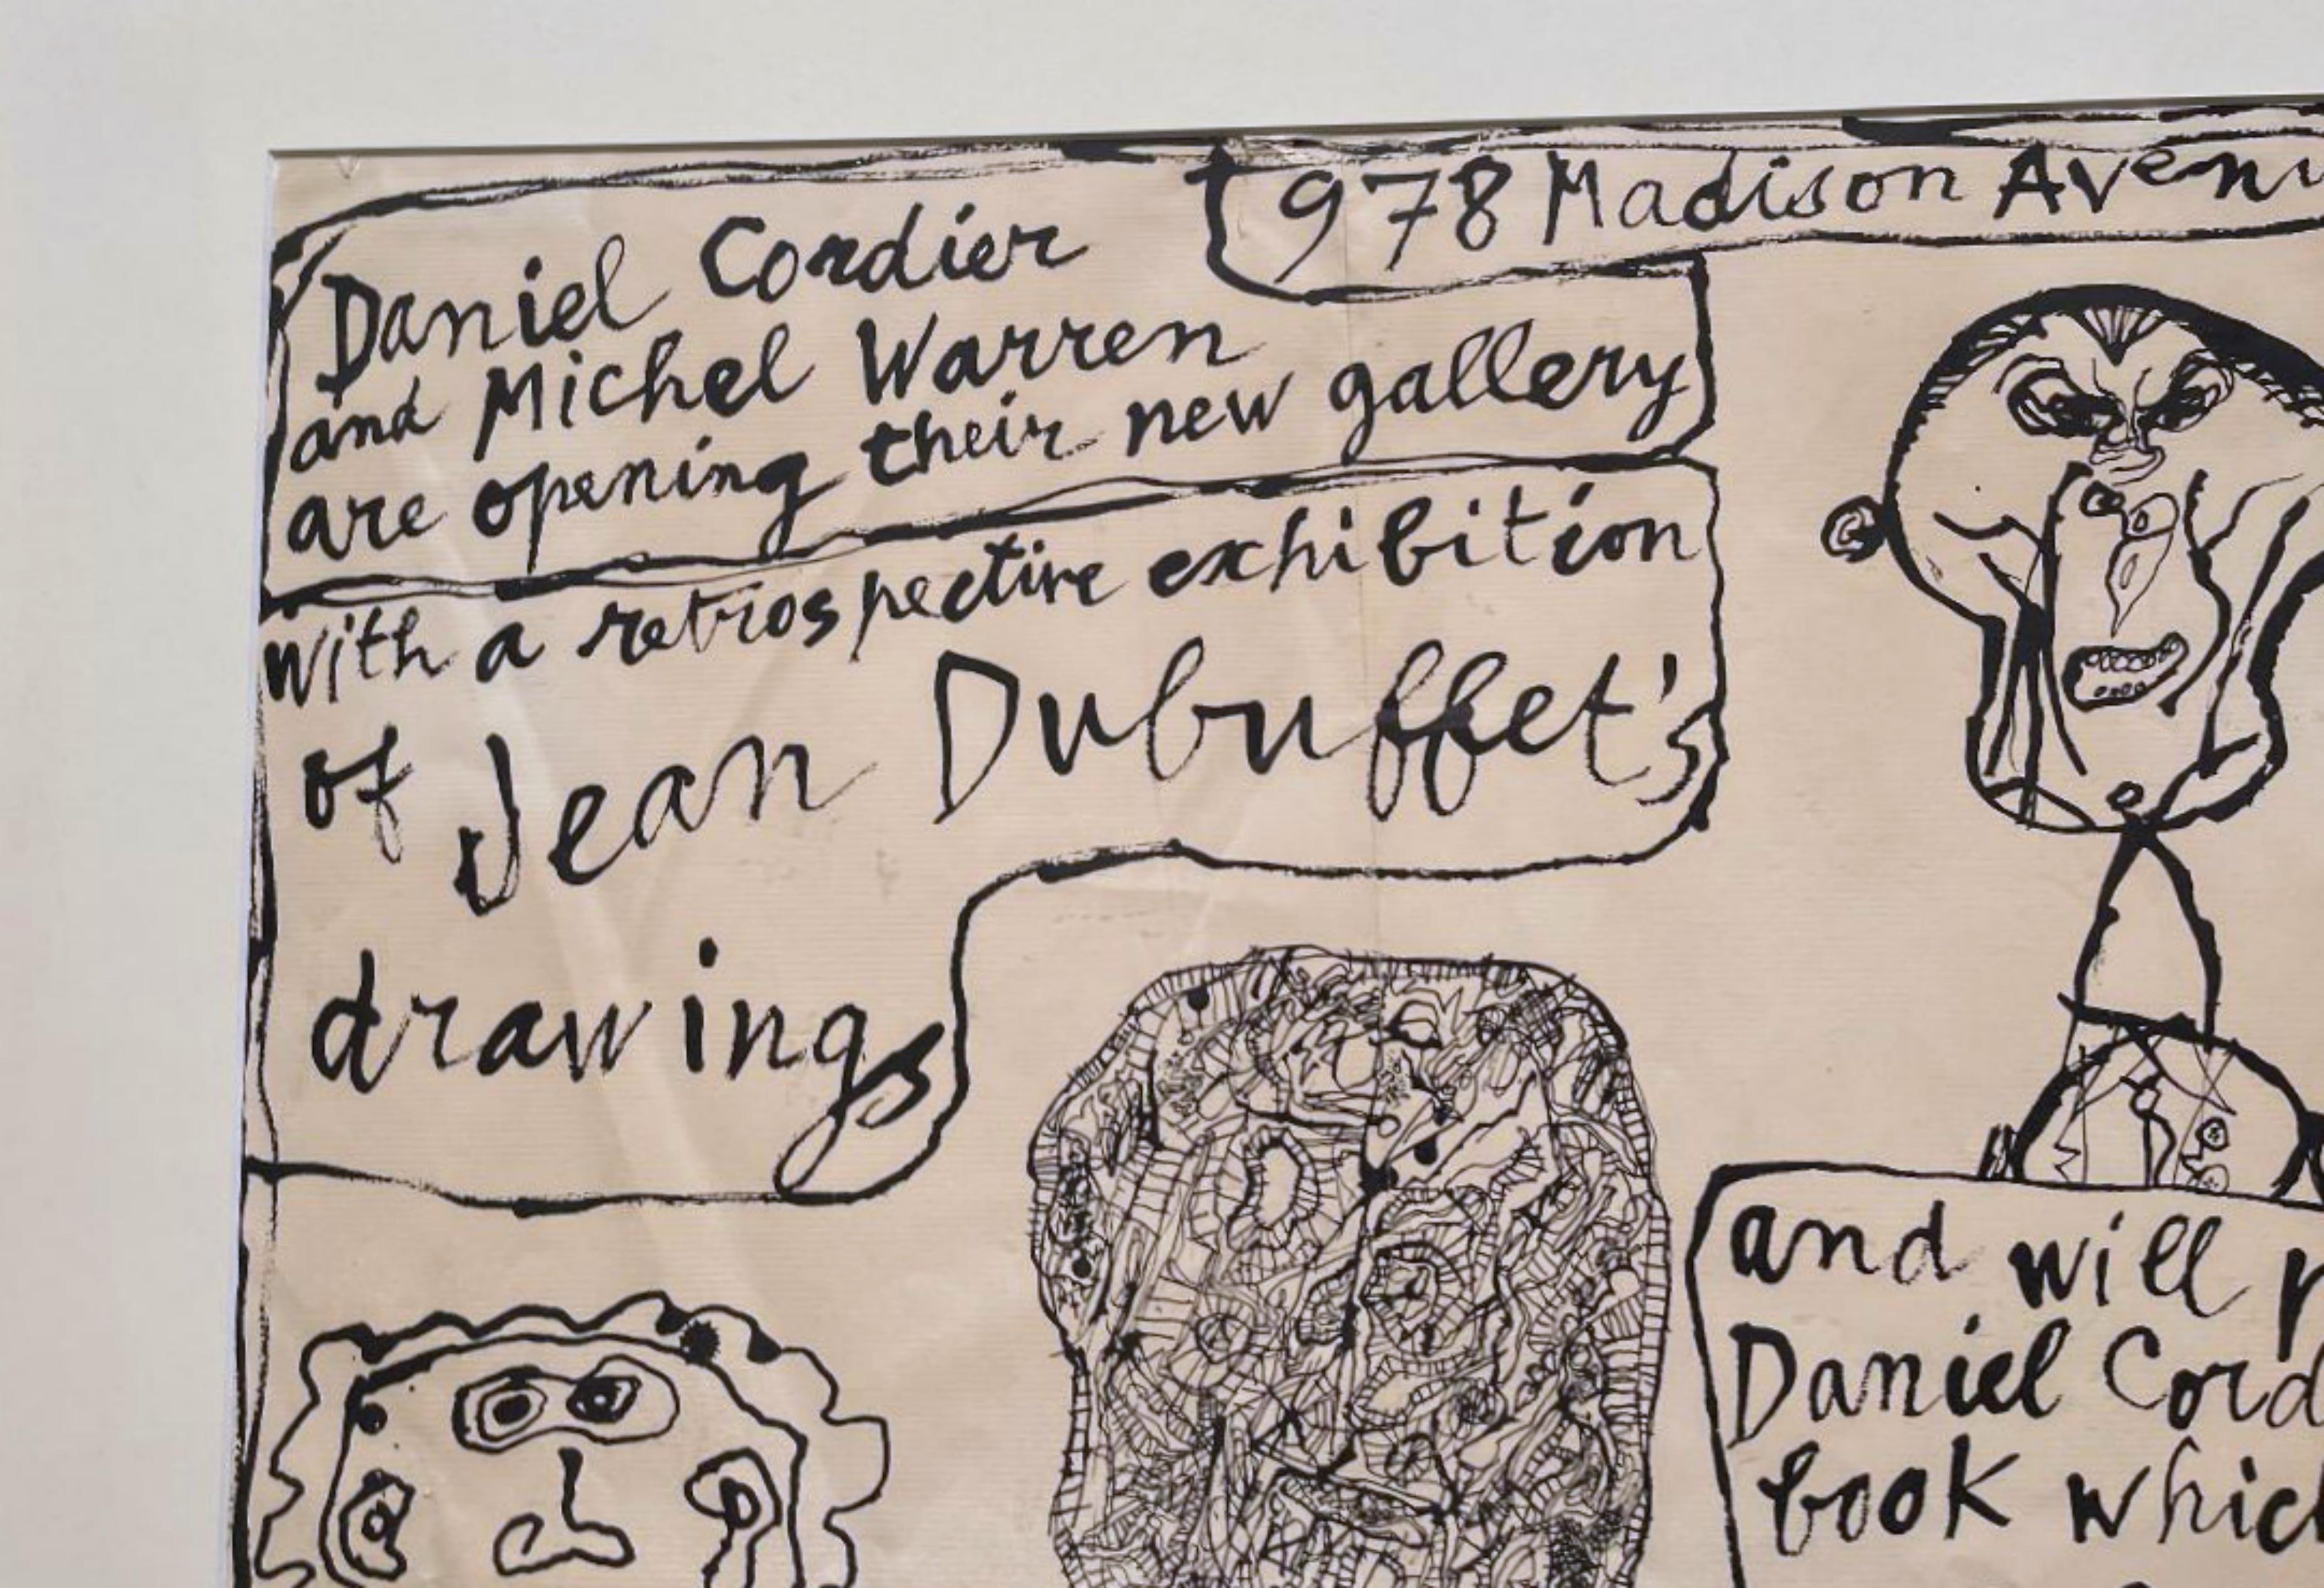 978 Madison Avenu
Daniel Cordier
and Michel Warren
are opening their new gallery
with a retrospective exhibition
of Jean Dubuffet's
drawings
and will
Daniel Cord
book which